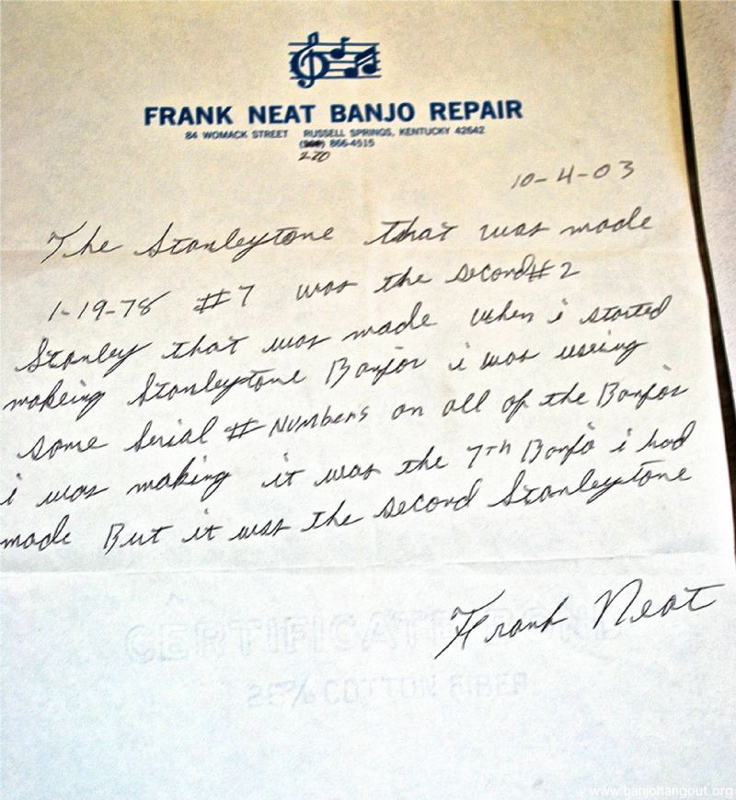 FRANK NEAT BANJO REPAIR
84 WOMACK STREET RUSSELL SPRINGS, KENTUCKY 42642
() 866-4515
270
10-4-03
The Stanleytone that was made
1-19-78 #7 was the second #2
Stanley that was made when i started
makeing Stanleytone Banjos i was useing
same serial # Numbers on all of the Banjos
i was making it was the 7th Banjo i had
made But it was the second Stanleytone
Frank Neat
CERTIFICATE BOND
25% COTTON FIBER
www.banjohangout.org